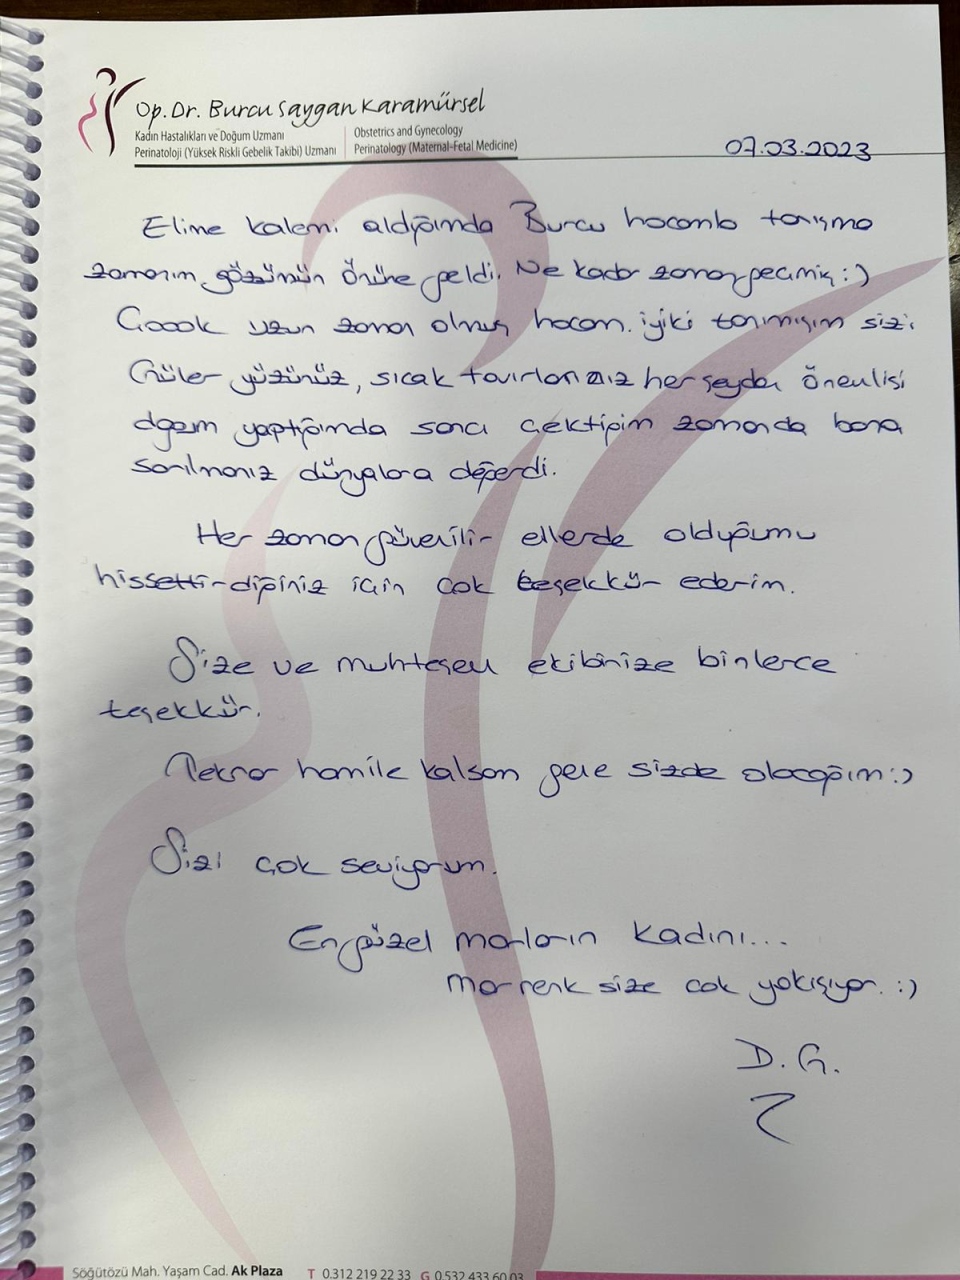 Op. Dr. Burcu Saygan Karamürsel
Kadın Hastalıkları ve Doğum Uzmanı
Perinatoloji (Yüksek Riskli Gebelik Takibi) Uzmanı
Obstetrics and Gynecology
Perinatology (Maternal-Fetal Medicine)
07.03.2023
Elime kalemi aldığımda Burcu hocamla tanışma
zamanım gözümün önüne geldi. Ne kadar zaman geçmiş :)
Çoook uzun zaman olmuş hocam. iyiki tanımışım sizi
Güler yüzünüz, sıcak tavırlarınız her şeyden önemlisi
doğum yaptığımda sancı çektiğim zamanda bana
sarılmanız dünyalara değerdi.
Her zaman güvenilir ellerde olduğumu
hissettirdiğiniz için çok teşekkür ederim.
Size ve muhteşem ekibinize binlerce
teşekkür.
Tekrar hamile kalsam gene sizde olacağım :)
Sizi çok seviyorum.
En güzel morların kadını...
mor renk size çok yakışıyor. :)
D. G.
Söğütözü Mah. Yaşam Cad. Ak Plaza
T 0.312 219 22 33 G 0.532 433 60 03